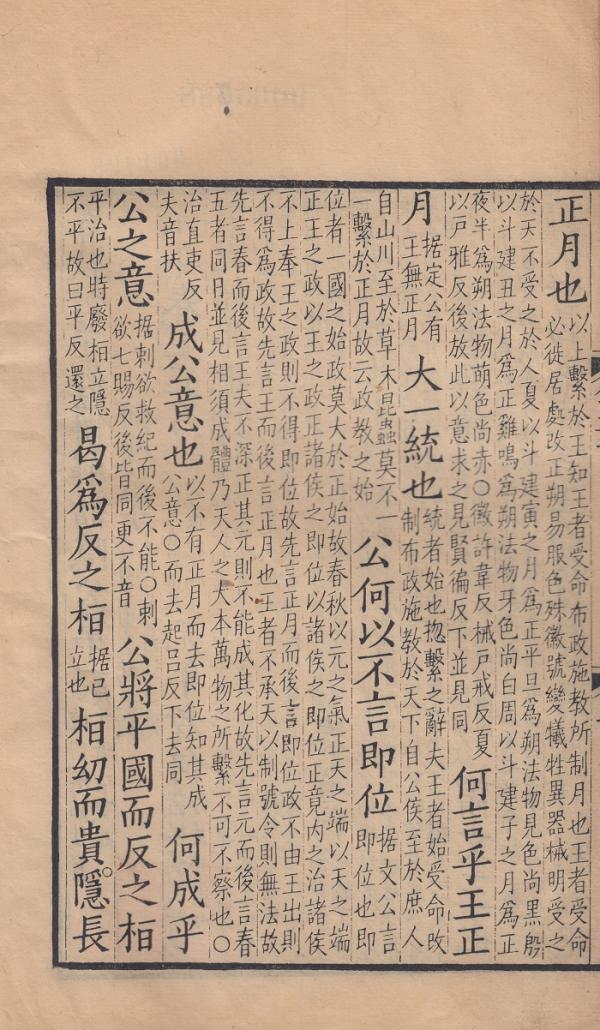 正月也以上繫於王知王者受命布政施教所制月也王者受命
必徙居處改正朔易服色殊徽號變犧牲異器械明受之
於天不受之於人夏以斗建寅之月爲正平旦爲朔法物見色尚黑殷
以斗建丑之月爲正雞鳴爲朔法物牙色尚白周以斗建子之月爲正
夜半爲朔法物萌色尚赤○徽許韋反械戶戒反夏
以戶雅反後放此以意求之見賢徧反下並見同
何言乎王正
月據定公有
王無正月
大一統也統者始也揔繫之辭夫王者始受命改
制布政施教於天下自公侯至於庶人
自山川至於草木昆蟲莫不一
一繫於正月故云政教之始
公何以不言即位據文公言
即位也即
位者一國之始政莫大於正始故春秋以元之氣正天之端以天之端
正王之政以王之政正諸侯之即位以諸侯之即位正竟內之治諸侯
不上奉王之政則不得即位故先言正月而後言即位政不由王出則
不得爲政故先言王而後言正月也王者不承天以制號令則無法故
先言春而後言王夫不深正其元則不能成其化故先言元而後言春
五者同日並見相須成體乃天人之大本萬物之所繫不可不察也○
治直吏反
夫音扶
成公意也以不有正月而去即位知其成
公意○而去起呂反下去同
何成乎
公之意據刺欲救紀而後不能○刺
欲七賜反後皆同更不音
公將平國而反之桓
平治也時廢桓立隱
不平故曰平反還之
曷爲反之桓據已
立也
桓幼而貴隱長